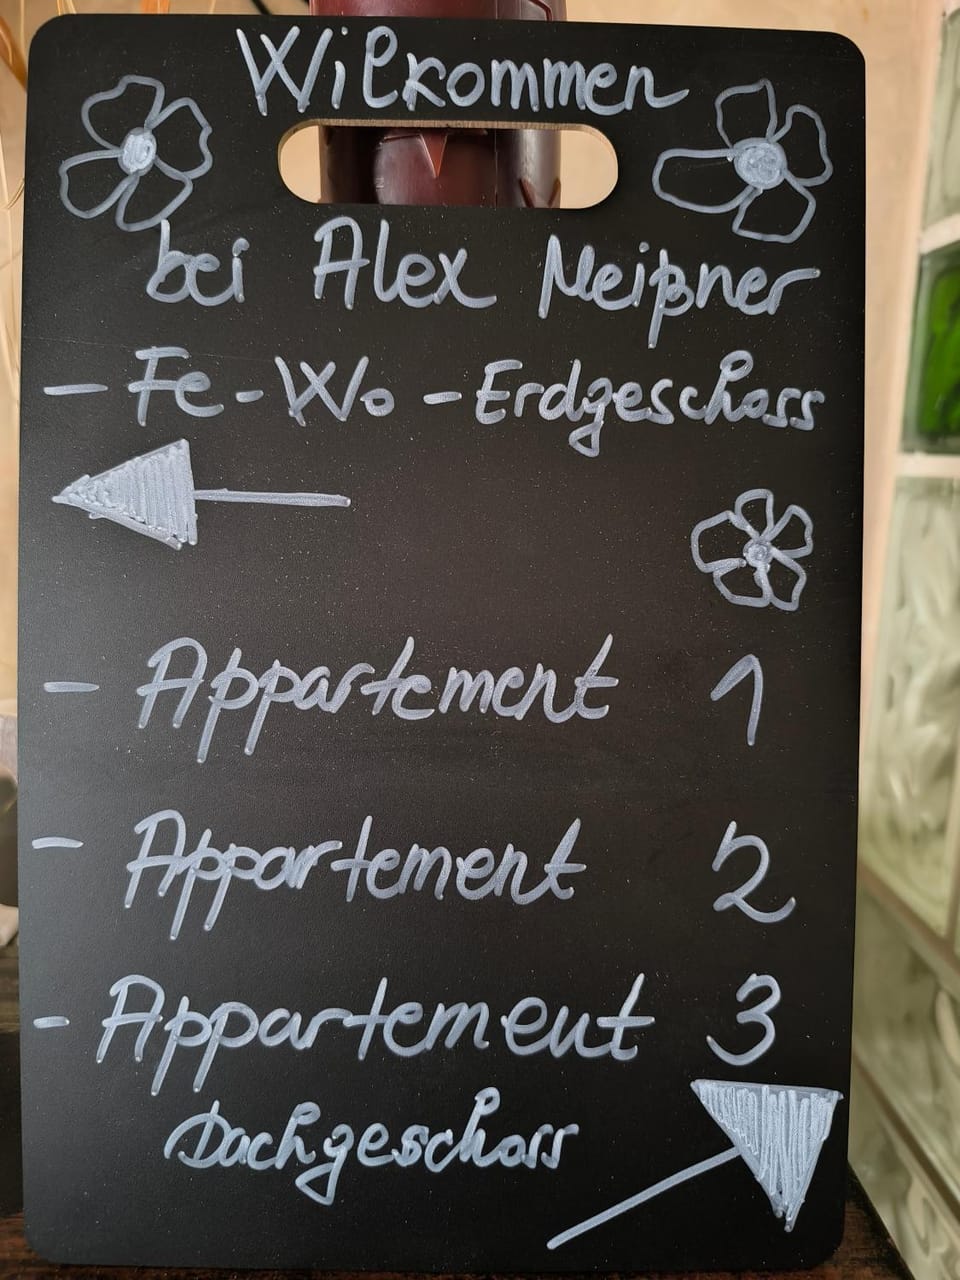 Wilkommen
bei Alex Meißner
- Fe-Wo-Erdgeschoss
- Appartement 1
- Appartement 2
- Appartement 3
Dachgeschoss